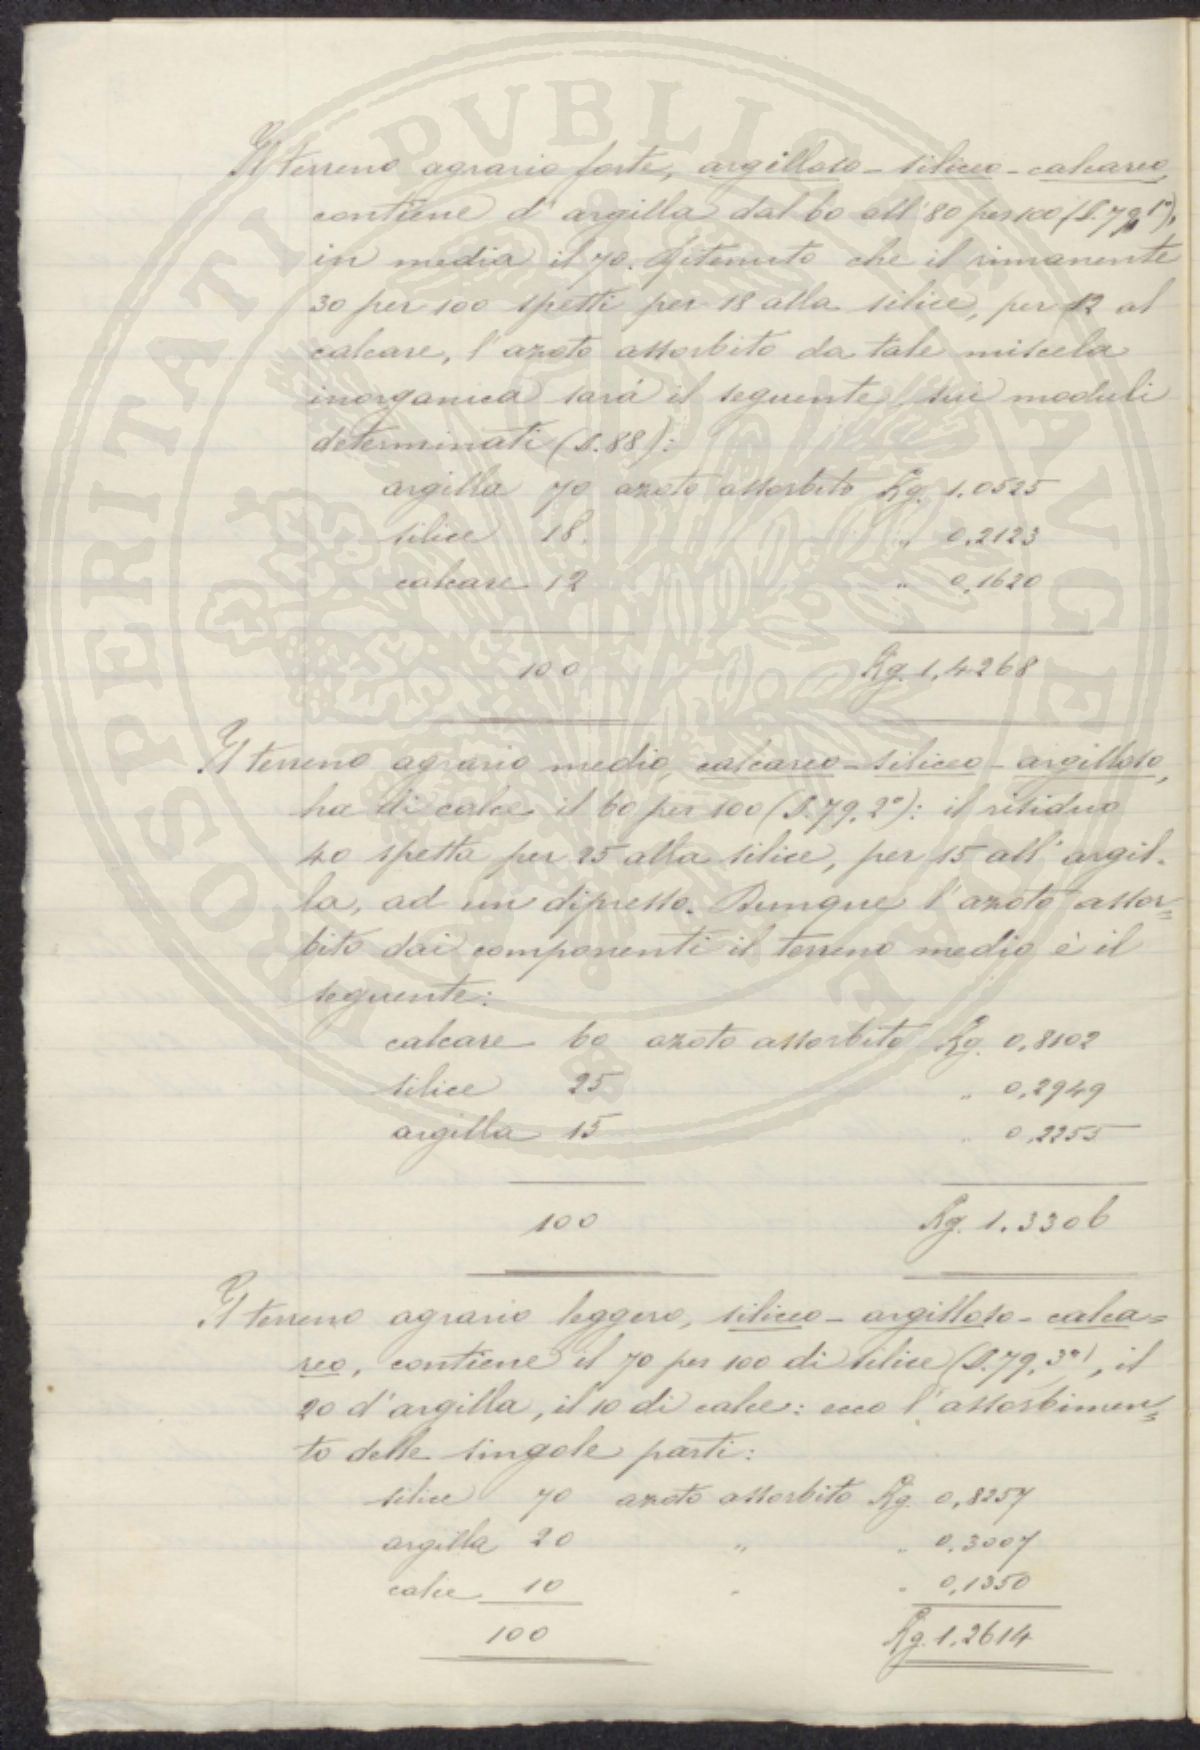 Il terreno agrario forte, argilloso-siliceo-calcareo,
contiene d'argilla dal 60 all'80 per 100 (§.79,1°),
in media il 70. Ritenuto che il rimanente
30 per 100 spetti per 18 alla silice, per 12 al
calcare, l'azoto assorbito da tale miscela
inorganica sarà il seguente sui moduli
determinati (§.88):
argilla 70 azoto assorbito Kg. 1.0525
silice 18. " 0,2123
calcare 12 " 0,1620
100 Kg. 1,4268
Il terreno agrario medio, calcareo-siliceo-argilloso,
ha di calce il 60 per 100 (§.79,2°): il residuo
40 spetta per 25 alla silice, per 15 all'argil-
la, ad un dipresso. Dunque l'azoto assor=
bito dai componenti il terreno medio è il
seguente:
calcare 60 azoto assorbito Kg. 0,8102
silice 25 " 0,2949
argilla 15 " 0,2255
100 Kg. 1.3306
Il terreno agrario leggero, siliceo-argilloso-calca=
reo, contiene il 70 per 100 di silice (§.79,3°), il
20 d'argilla, il 10 di calce: ecco l'assorbimen=
to delle singole parti:
silice 70 azoto assorbito Kg. 0,8257
argilla 20 " " 0.3007
calce 10 " " 0,1350
100 Kg. 1.2614
PROSPERITATI PVBLICAE AVGENDAE